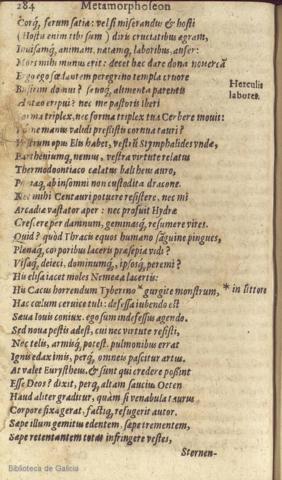 284 Metamorphoseon
Corq́, ferum satia: vel si miserandus & hosti
(Hostis enim tibi sum) diris cruciatibus ægram,
Inuisamq́, animam, natamq́, laboribus, aufer:
Mors mihi munus erit: decet hæc dare dona nouercã
Ergo ego fœdantem peregrino templa cruore
Busirim domui? sæuoq́, alimenta parentis
Antæo eripui? nec me pastoris Iberi
Forma triplex, nec forma triplex tua Cerbere mouit:
Vos ne manus validi pressistis cornua tauri?
Vestrum opus Elis habet, vestrũ Stymphalides vndæ,
Partheniumq́, nemus, vestra virtute relatus
Thermodontiaco cælatus baltheus auro,
Pomaq́, ab insomni non custodita dracone.
Nec mihi Centauri potuere resistere, nec mi
Arcadiæ vastator aper: nec profuit Hydræ
Crescere per damnum, geminasq́, resumere vires.
Quid? quòd Thracis equos humano sãguine pingues,
Plenaq́, corporibus laceris præsepia vidi?
Visaq́, deieci, dominumq́, ipsosq́, peremi?
His elisa iacet moles Nemeæa lacertis:
His Cacus horrendum Tyberino * gurgite monstrum,
Hac cœlum ceruice tuli: defessa iubendo est
Sæua Iouis coniux: ego sum indefessus agendo.
Sed noua pestis adest, cui nec virtute resisti,
Nec telis, armisq́, potest. pulmonibus errat
Ignis edax imis, perq́, omneis pascitur artus.
At valet Eurystheus. & sunt qui credere possint
Esse Deos? dixit, perq́, altam saucius Oeten
Haud aliter graditur, quàm si venabula taurus
Corpore fixa gerat, factiq́, refugerit autor.
Sæpe illum gemitus edentem, sæpe trementem,
Sæpe retentantem totas infringere vestes,
Sternen-
Herculis
labores.
* in littore
Biblioteca de Galicia